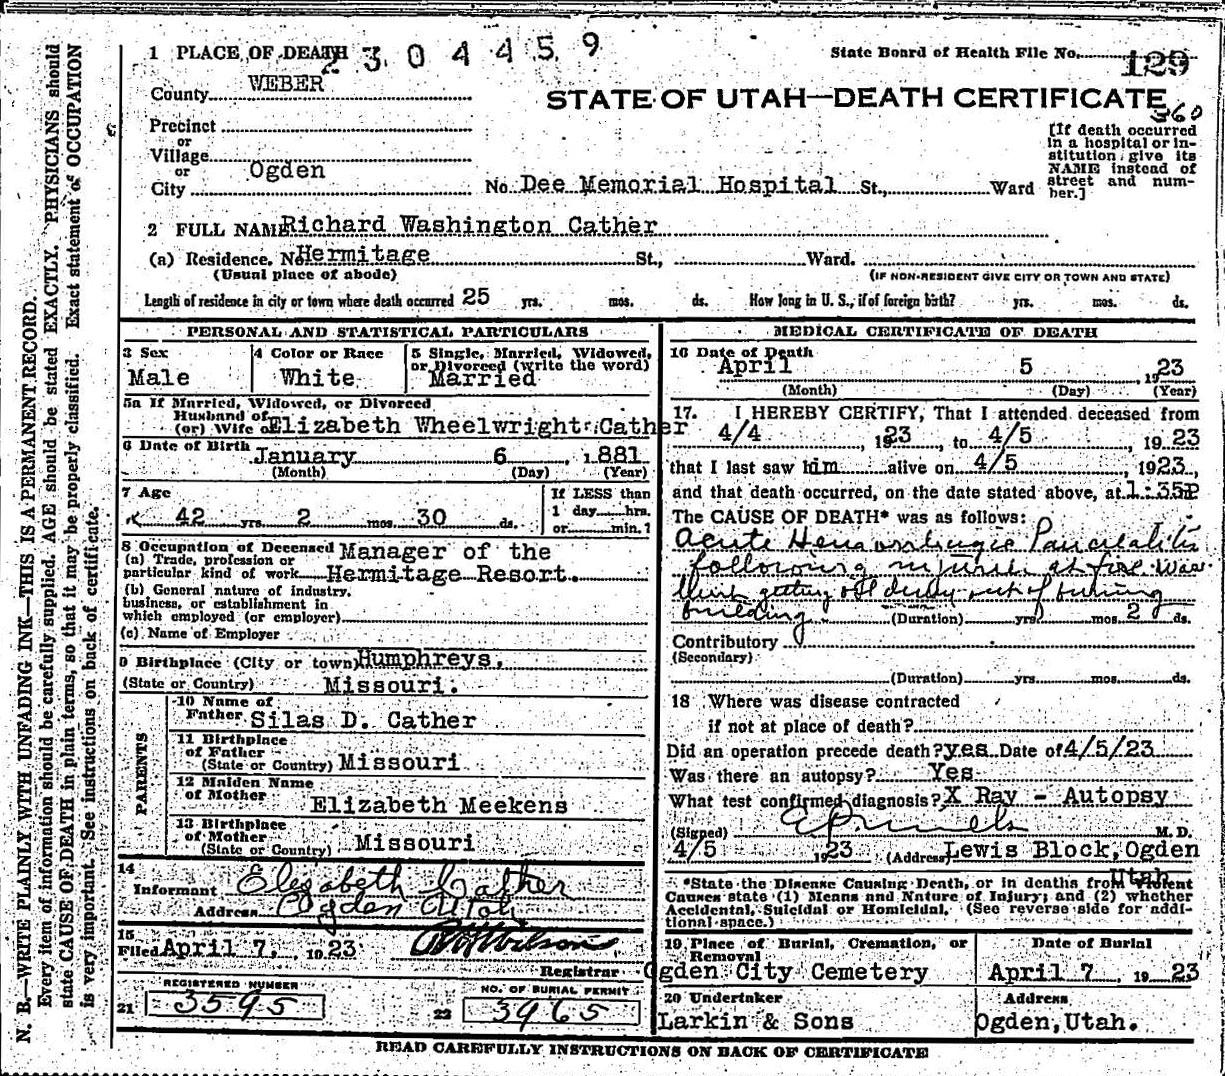 N. B.—WRITE PLAINLY WITH UNFADING INK—THIS IS A PERMANENT RECORD.
Every item of information should be carefully supplied. AGE should be stated EXACTLY. PHYSICIANS should
state CAUSE OF DEATH in plain terms, so that it may be properly classified. Exact statement of OCCUPATION
is very important. See instructions on back of certificate.
1 PLACE OF DEATH 2304459
State Board of Health File No. 129
County WEBER
STATE OF UTAH—DEATH CERTIFICATE
360
Precinct
or
Village
or
City Ogden
No. Dee Memorial Hospital St., Ward
[If death occurred
in a hospital or in-
stitution give its
NAME instead of
street and num-
ber.]
2 FULL NAME Richard Washington Cather
(a) Residence. No. Hermitage St., Ward.
(Usual place of abode) (IF NON-RESIDENT GIVE CITY OR TOWN AND STATE)
Length of residence in city or town where death occurred 25 yrs. mos. ds. How long in U. S., if of foreign birth? yrs. mos. ds.
PERSONAL AND STATISTICAL PARTICULARS
3 Sex
Male
4 Color or Race
White
5 Single, Married, Widowed,
or Divorced (write the word)
Married
5a If Married, Widowed, or Divorced
Husband of
(or) Wife of Elizabeth Wheelwright Cather
6 Date of Birth January 6, 1881
(Month) (Day) (Year)
7 Age
42 yrs. 2 mos. 30 ds.
If LESS than
1 day hrs.
or min.?
8 Occupation of Deceased Manager of the
(a) Trade, profession or
particular kind of work Hermitage Resort.
(b) General nature of industry,
business, or establishment in
which employed (or employer)
(c) Name of Employer
9 Birthplace (City or town) Humphreys,
(State or Country) Missouri.
PARENTS
10 Name of
Father Silas D. Cather
11 Birthplace
of Father
(State or Country) Missouri
12 Maiden Name
of Mother Elizabeth Meekens
13 Birthplace
of Mother
(State or Country) Missouri
14
Informant Elizabeth Cather
Address Ogden Utah
15
Filed April 7, 1923 Wilson
Registrar
REGISTERED NUMBER
21 3595
NO. OF BURIAL PERMIT
22 3965
MEDICAL CERTIFICATE OF DEATH
16 Date of Death
April 5, 1923
(Month) (Day) (Year)
17. I HEREBY CERTIFY, That I attended deceased from
4/4, 1923, to 4/5, 1923
that I last saw him alive on 4/5, 1923,
and that death occurred, on the date stated above, at 1:35P
The CAUSE OF DEATH* was as follows:
Acute Hemorrhagic Pancreatitis
following injuries at fire was
getting old out of burning
building (Duration) yrs. mos. 2 ds.
Contributory
(Secondary)
(Duration) yrs. mos. ds.
18 Where was disease contracted
if not at place of death?
Did an operation precede death? yes Date of 4/5/23
Was there an autopsy? Yes
What test confirmed diagnosis? X Ray - Autopsy
(Signed) M. D.
4/5 1923 (Address) Lewis Block, Ogden
Utah
*State the Disease Causing Death, or in deaths from Violent
Causes state (1) Means and Nature of Injury; and (2) whether
Accidental, Suicidal or Homicidal. (See reverse side for addi-
tional space.)
19 Place of Burial, Cremation, or
Removal
Ogden City Cemetery
Date of Burial
April 7, 1923
20 Undertaker
Larkin & Sons
Address
Ogden, Utah.
READ CAREFULLY INSTRUCTIONS ON BACK OF CERTIFICATE